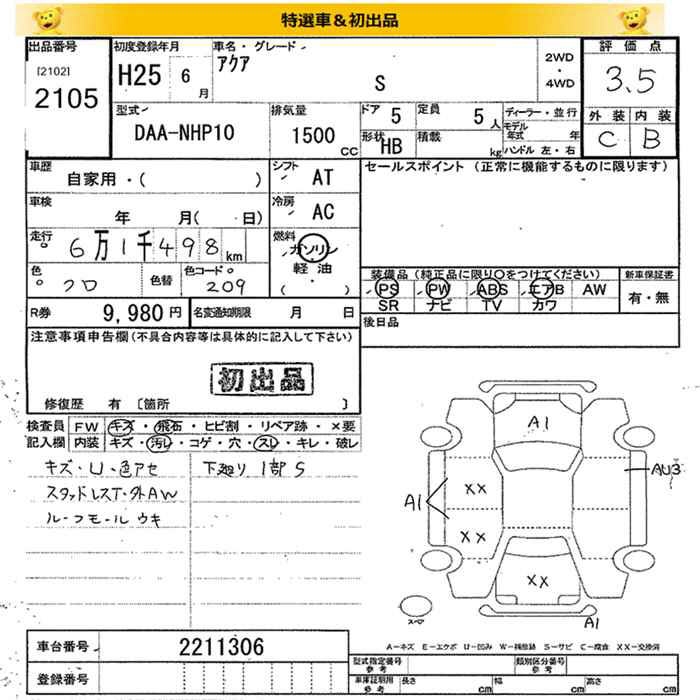 特選車＆初出品
出品番号
[2102]
2105
初度登録年月
H25 6月
車名・グレード
アクア
S
2WD
・
4WD
評価点
3.5
外装 内装
C B
型式
DAA-NHP10
排気量
1500 CC
ドア 5
定員 5人
形状 HB
積載 kg
ディーラー・並行
モデル年式 年
ハンドル 左・右
車歴
自家用・( )
シフト AT
車検
年 月( 日)
冷房 AC
走行
6万1千498km
燃料
ガソリン
軽油
( ・ )
色
クロ
色替
色コード
209
R券 9,980円
名変通知期限 月 日
セールスポイント (正常に機能するものに限ります)
装備品 (純正品に限り○をつけてください)
PS PW ABS エアB AW
SR ナビ TV カワ
新車保証書
有・無
後日品
注意事項申告欄(不具合内容等は具体的に記入して下さい)
初出品
修復歴 有 〔箇所 〕
検査員記入欄
FW キズ・飛石・ヒビ割・リペア跡・×要
内装 キズ・汚レ・コゲ・穴・スレ・キレ・破レ
キズ・U・色アセ
スタッドレスT・外AW
ルーフモールウキ
下廻り1部S
A1
AU3
A1
XX
XX
XX
A1
スペア
A－キズ E－エクボ U－凹み W－補修跡 S－サビ C－腐食 XX－交換済
車台番号 2211306
登録番号
型式指定番号 参考
類別区分番号 参考
車庫証明用 参考
長さ cm
幅 cm
高さ cm